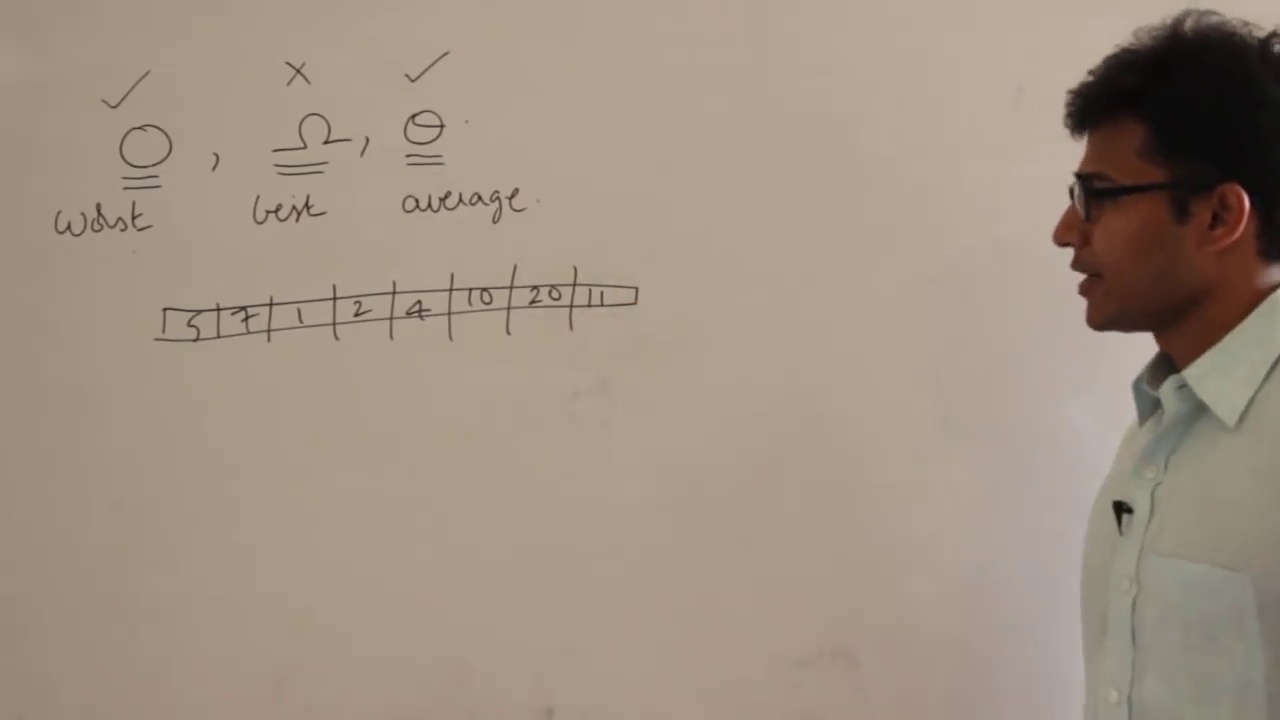 ✓ × ✓
O , Ω , Θ
worst best average.
5 7 1 2 4 10 20 11